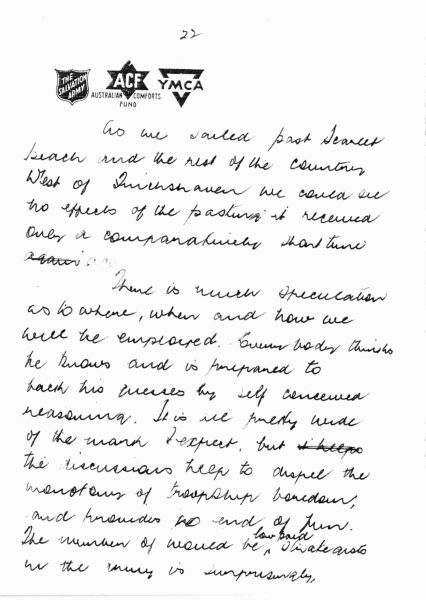 22
THE SALVATION ARMY
ACF
AUSTRALIAN COMFORTS FUND
YMCA
As we sailed past Scarlet
Beach and the rest of the country
West of Finchshaven we could see
no effects of the pasting it received
only a comparatively short time
again
There is much speculation
as to where, when and how we
will be employed. Every body thinks
he knows and is prepared to
back his guesses by self conceived
reasoning. It is all pretty wide
of the mark I expect, but it helps
the discussions help to dispel the
monotony of troopship boredom,
and provides no end of fun.
The number of would be, low paid
strategists
in the army is surprisingly,